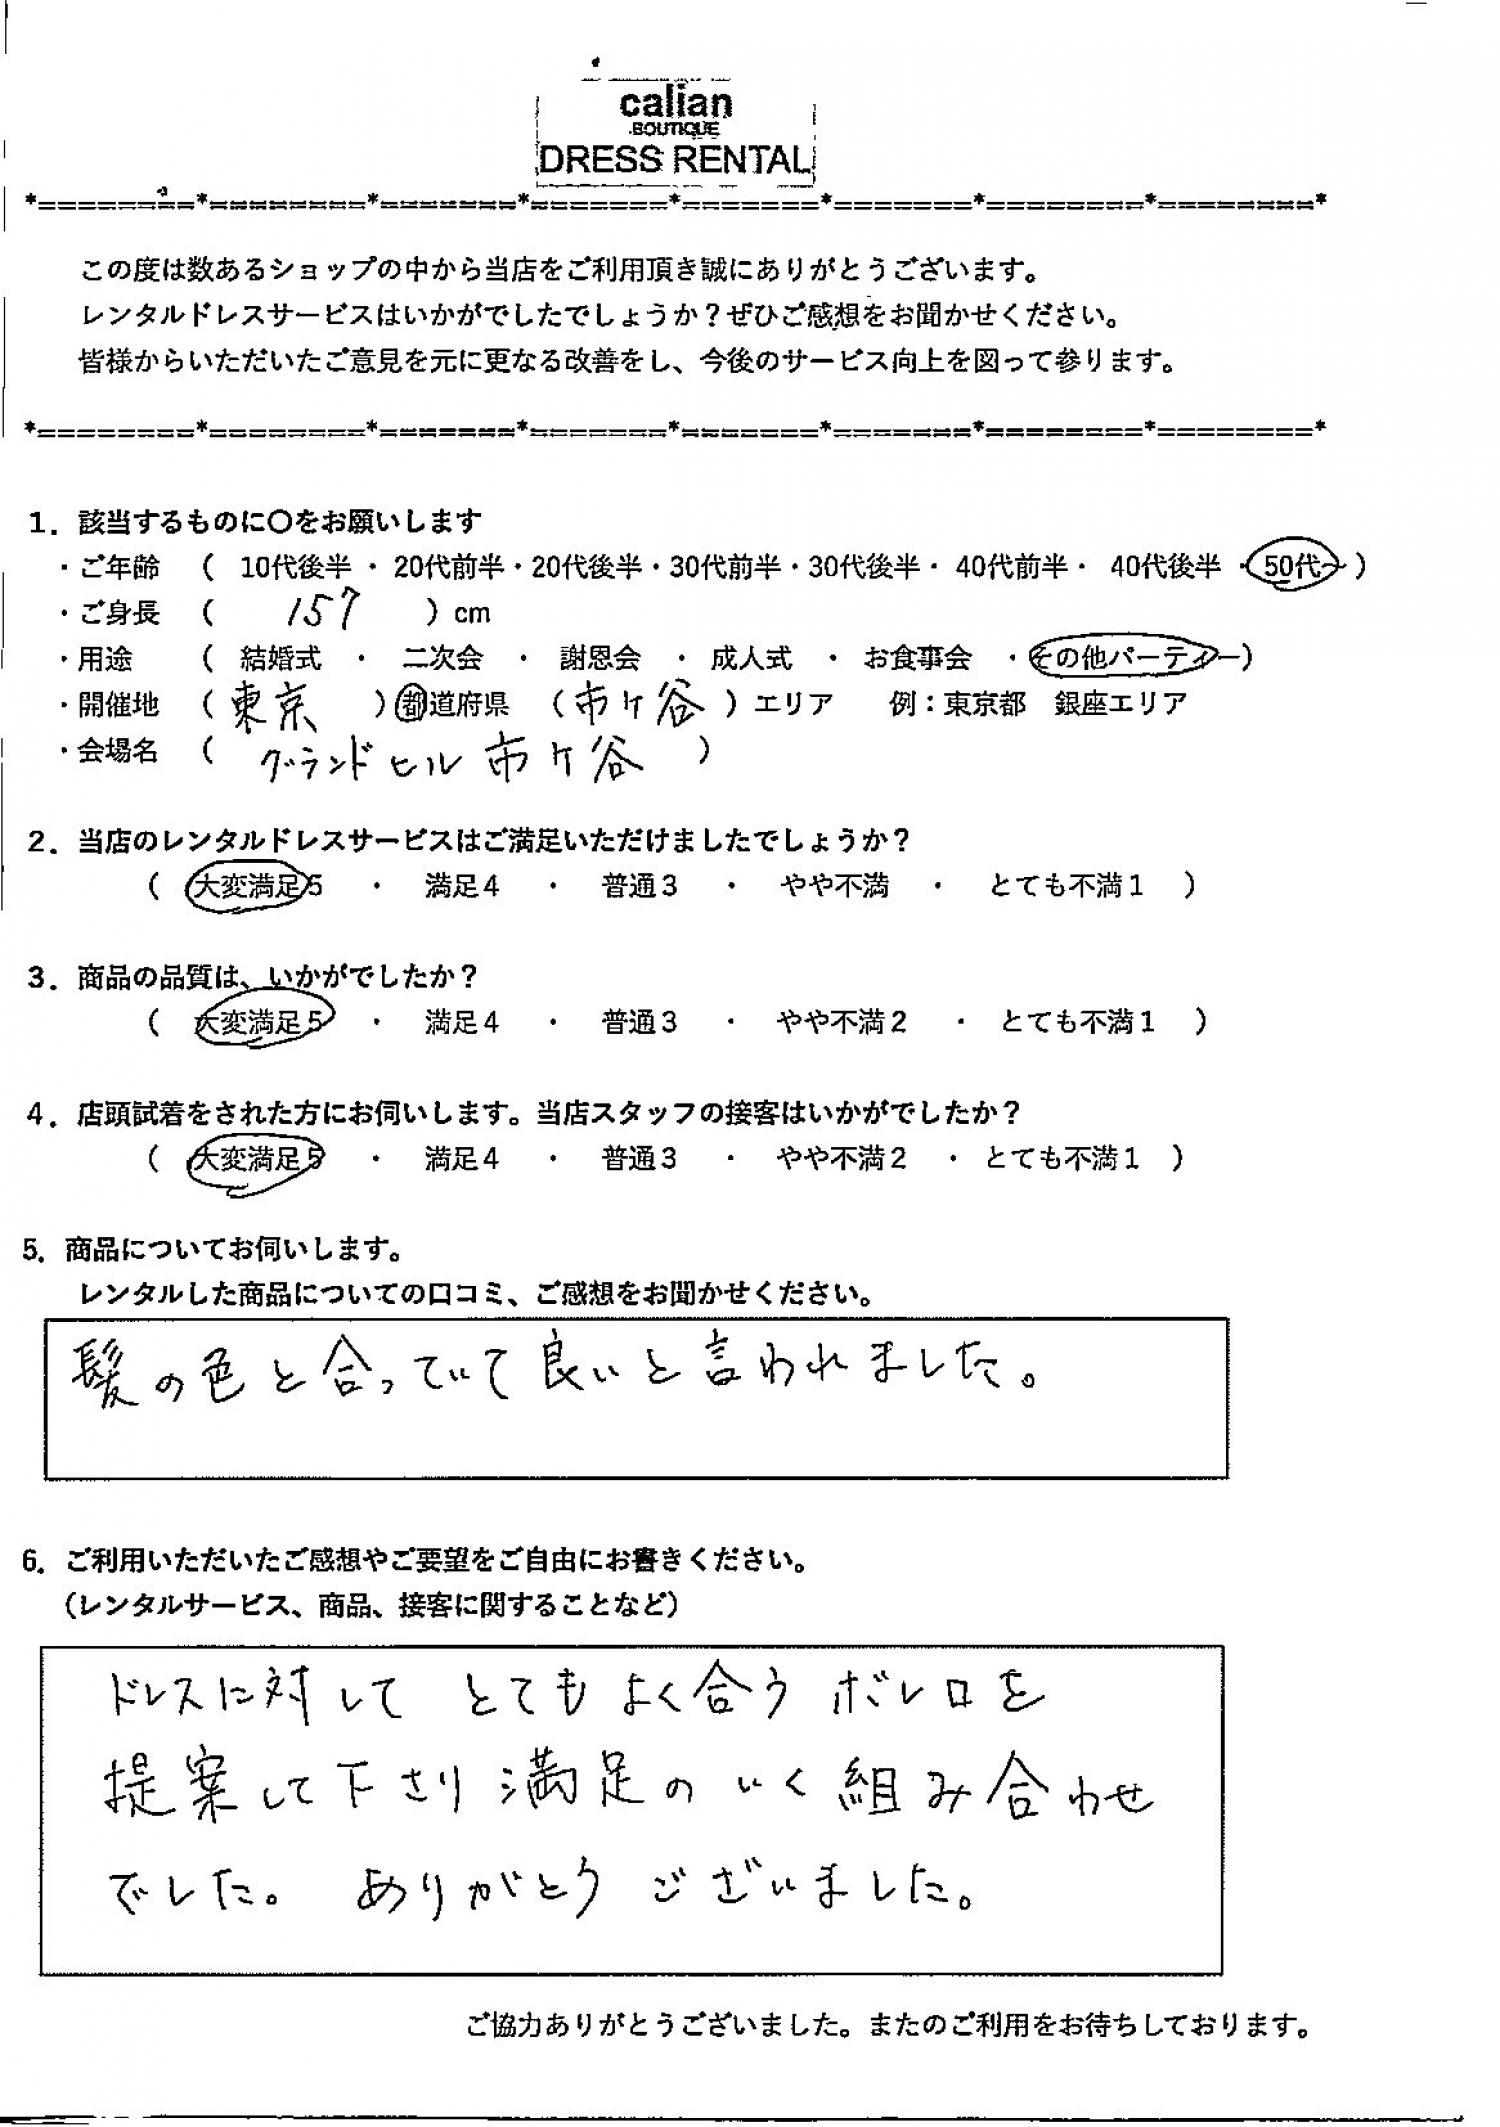 calian
BOUTIQUE
DRESS RENTAL
*========*========*=======*=======*=======*=======*========*========*
この度は数あるショップの中から当店をご利用頂き誠にありがとうございます。
レンタルドレスサービスはいかがでしたでしょうか？ぜひご感想をお聞かせください。
皆様からいただいたご意見を元に更なる改善をし、今後のサービス向上を図って参ります。
*========*========*=======*=======*=======*=======*========*========*
1．該当するものに〇をお願いします
・ご年齢 （ 10代後半 ・ 20代前半・20代後半・30代前半・30代後半・ 40代前半・ 40代後半 ・50代～ ）
・ご身長 （ 157 ）cm
・用途 （ 結婚式 ・ 二次会 ・ 謝恩会 ・ 成人式 ・ お食事会 ・その他パーティー）
・開催地 （ 東京 ）都道府県 （ 市ケ谷 ）エリア 例：東京都 銀座エリア
・会場名 （ グランドヒル市ケ谷 ）
2．当店のレンタルドレスサービスはご満足いただけましたでしょうか？
（ 大変満足5 ・ 満足4 ・ 普通3 ・ やや不満 ・ とても不満1 ）
3．商品の品質は、いかがでしたか？
（ 大変満足5 ・ 満足4 ・ 普通3 ・ やや不満2 ・ とても不満1 ）
4．店頭試着をされた方にお伺いします。当店スタッフの接客はいかがでしたか？
（ 大変満足5 ・ 満足4 ・ 普通3 ・ やや不満2 ・ とても不満1 ）
5．商品についてお伺いします。
レンタルした商品についての口コミ、ご感想をお聞かせください。
髪の色と合っていて良いと言われました。
6．ご利用いただいたご感想やご要望をご自由にお書きください。
（レンタルサービス、商品、接客に関することなど）
ドレスに対して とてもよく合うボレロを
提案して下さり満足のいく組み合わせ
でした。 ありがとうございました。
ご協力ありがとうございました。またのご利用をお待ちしております。